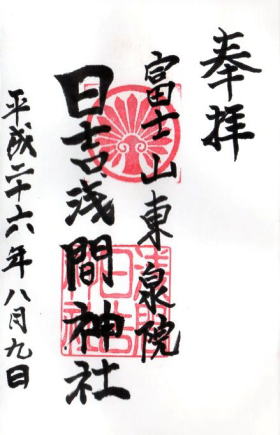 奉拝
富士山東泉院
日吉浅間神社
平成二十六年八月九日